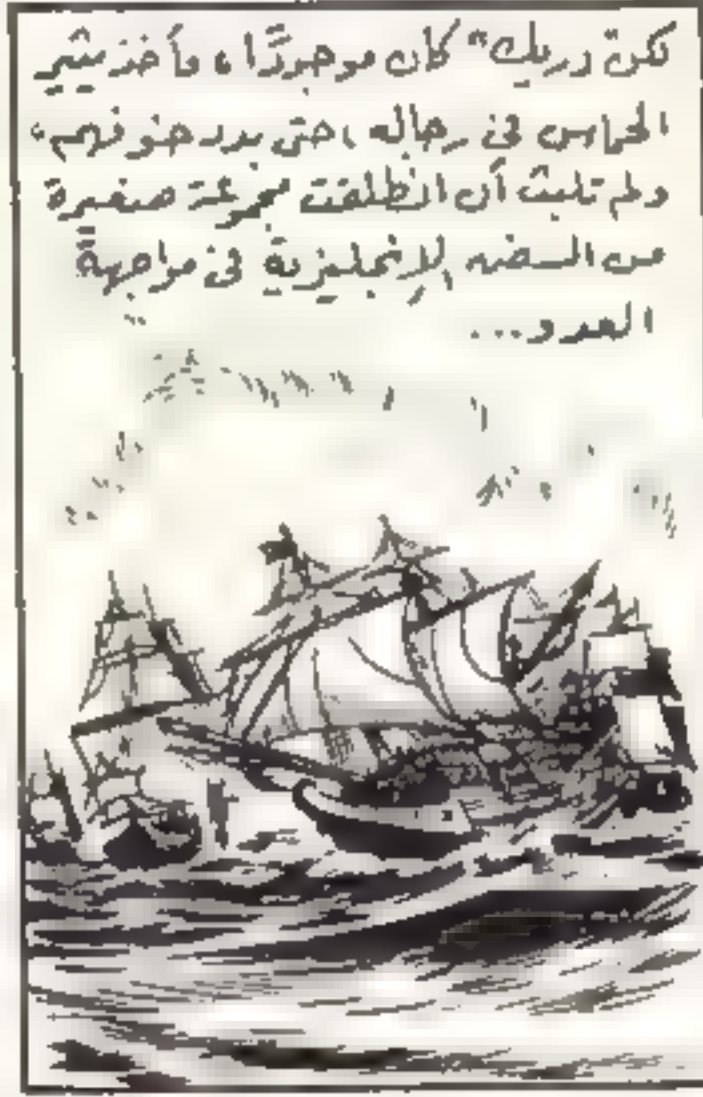 لكن "دريك" كان موجودًا، وأخذ يثير
الحماس فى رجاله، حتى بدد خوفهم،
ولم تلبث أن انطلقت مجموعة صغيرة
من السفن الإنجليزية فى مواجهة
العدو...